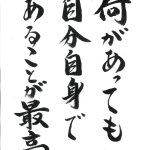 何があっても
自分自身で
あることが最高